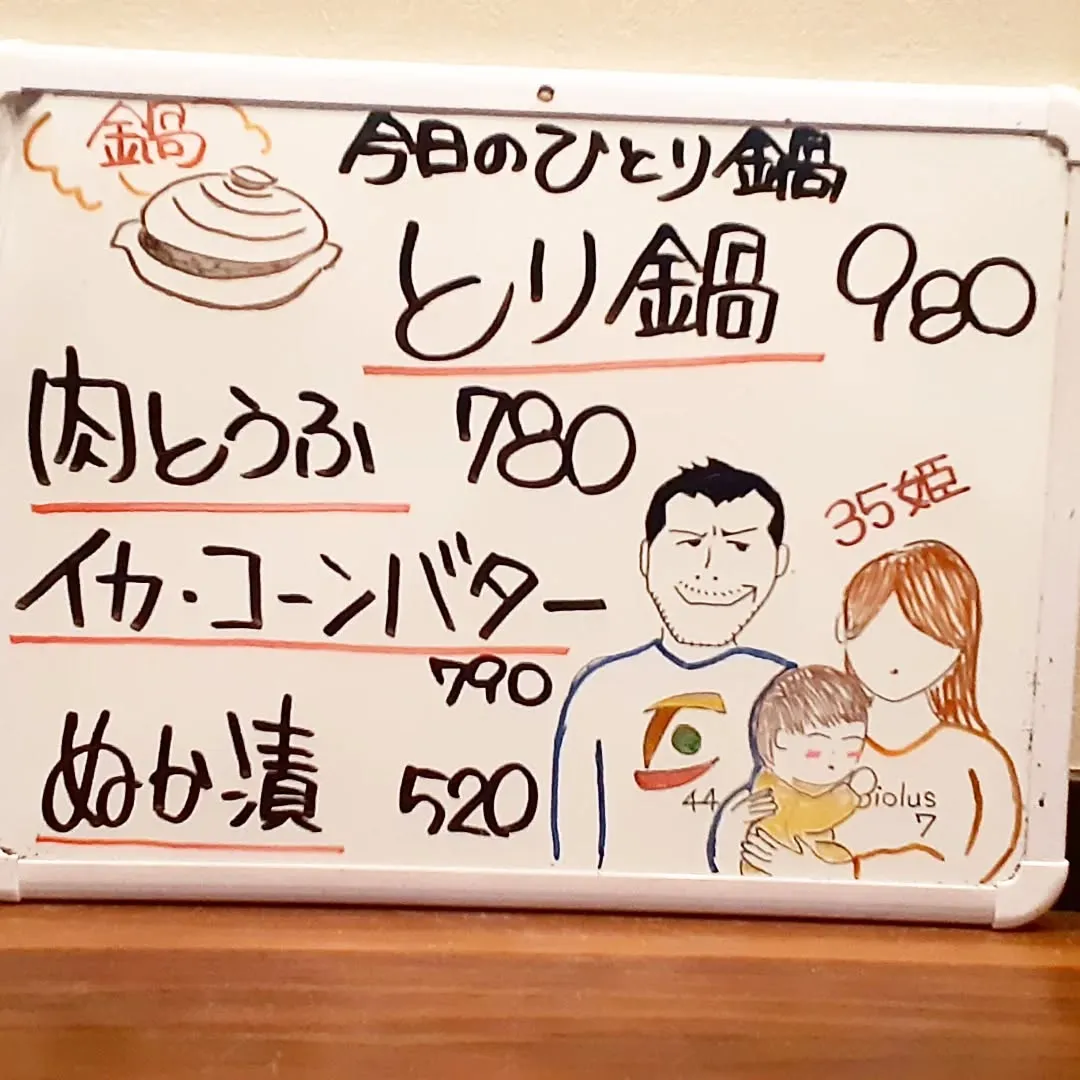 鍋
今日のひとり鍋
とり鍋 980
肉とうふ 780
イカ・コーンバター
790
ぬか漬 520
35姫
44
Biolus
7